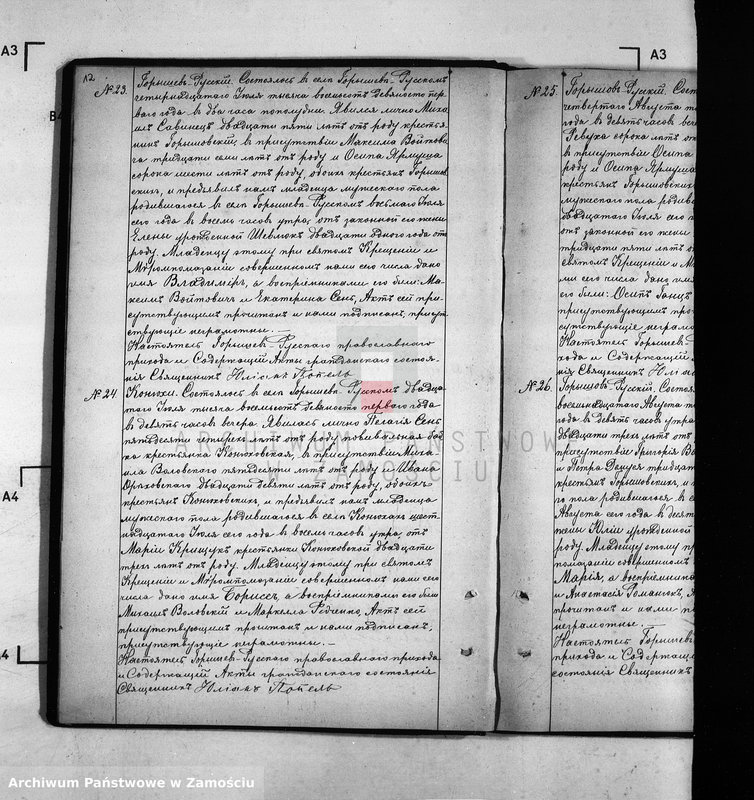 12
№ 23.
Горышев-Русскій. Состоялось в селе Горышеве-Русском
четырнадцатаго Іюля тысяча восемьсот девяносто пер
ваго года в два часа пополудни. Явился лично Миха
ил Савинец двадцати пяти лет от роду крестья
нин Горышовскій, в присутствіи Максима Войтови
ча тридцати семи лет от роду и Осипа Ярмуша
сорока шести лет от роду, обоих крестьян Горышов
ских, и предъявил нам младенца мужескаго пола
родившагося в селе Горышеве-Русском восьмаго Іюля
сего года в восемь часов утра, от законной его жены
Елены урожденной Шевлюк двадцати одного года от
роду. Младенцу этому при святом Крещеніи и
Мѵропомазаніи совершенном нами сего числа дано
имя Владимір, а воспріемниками его были: Ма
ксим Войтович и Екатерина Сень, Акт сей при
сутствующим прочитан и нами подписан, присут
ствующіе неграмотны. —
Настоятель Горышев-Русскаго православнаго
прихода и Содержащій Акты гражданскаго состоя-
нія Священник Юліан Попель
№ 24
Конюхи. Состоялось в селе Горышеве-Русском двадца
таго Іюля тысяча восемьсот девяносто перваго года
в девять часов вечера. Явилась лично Пелагія Сень
пятидесяти четырех лет от роду повивальная баб
ка крестьянка Конюховская, в присутствіи Миха
ила Воловскаго пятидесяти лет от роду и Ивана
лет от роду, обоих
крестьян Конюховских, и предъявила нам младенца
мужескаго пола родившагося в селе Конюхах шест
надцатаго Іюля сего года в восемь часов утра, от
Маріи Крищук крестьянки Конюховской двадцати
трех лет от роду. Младенцу этому при святом
Крещеніи и Мѵропомазаніи совершенном нами сего
числа дано имя Борисс, а воспріемниками его были
Михаил Воловскій и Маркелла Акт сей
присутствующим прочитан и нами подписан,
присутствующіе неграмотны. —
Настоятель Горышев-Русскаго православнаго прихода
и Содержащій Акты гражданскаго состоянія
Священник Юліан Попель
№ 25.
Горышов-Русскій. Сост
четвертаго Августа т
года в девять часов веч
Ревуха сорока лет от
в присутствіи Осипа
роду и Осипа Ярмуша
крестьян Горышовских
мужескаго пола родивша
двадцатаго Іюля сего г
от законной его жены
тридцати пяти лет о
святом Крещеніи и М
ми сего числа дано имя
его были: Осип Ганц
присутствующим прочи
сутствующіе неграмо
Настоятель Горышев
хода и Содержащій
нія Священник Юліа
№ 26.
Горышов-Русскій. Состоя
восемнадцатаго Августа т
года в девять часов утра
двадцати трех лет от
присутствіи Григорія Во
и Петра тридцат
крестьян Горышовских, и
го пола родившагося в се
Августа сего года в десят
жены Юліи урожденной
роду. Младенцу этому пр
помазаніи совершенном
Марія, а воспріемника
и Анастасія Романюк, А
прочитан и нами по
неграмотны. —
Настоятель Горышев
прихода и Содержащ
состоянія Священник
A3
A3
B4
A4
4
ARCHIWUM PAŃSTWOWE
W ZAMOŚCIU
Archiwum Państwowe w Zamościu